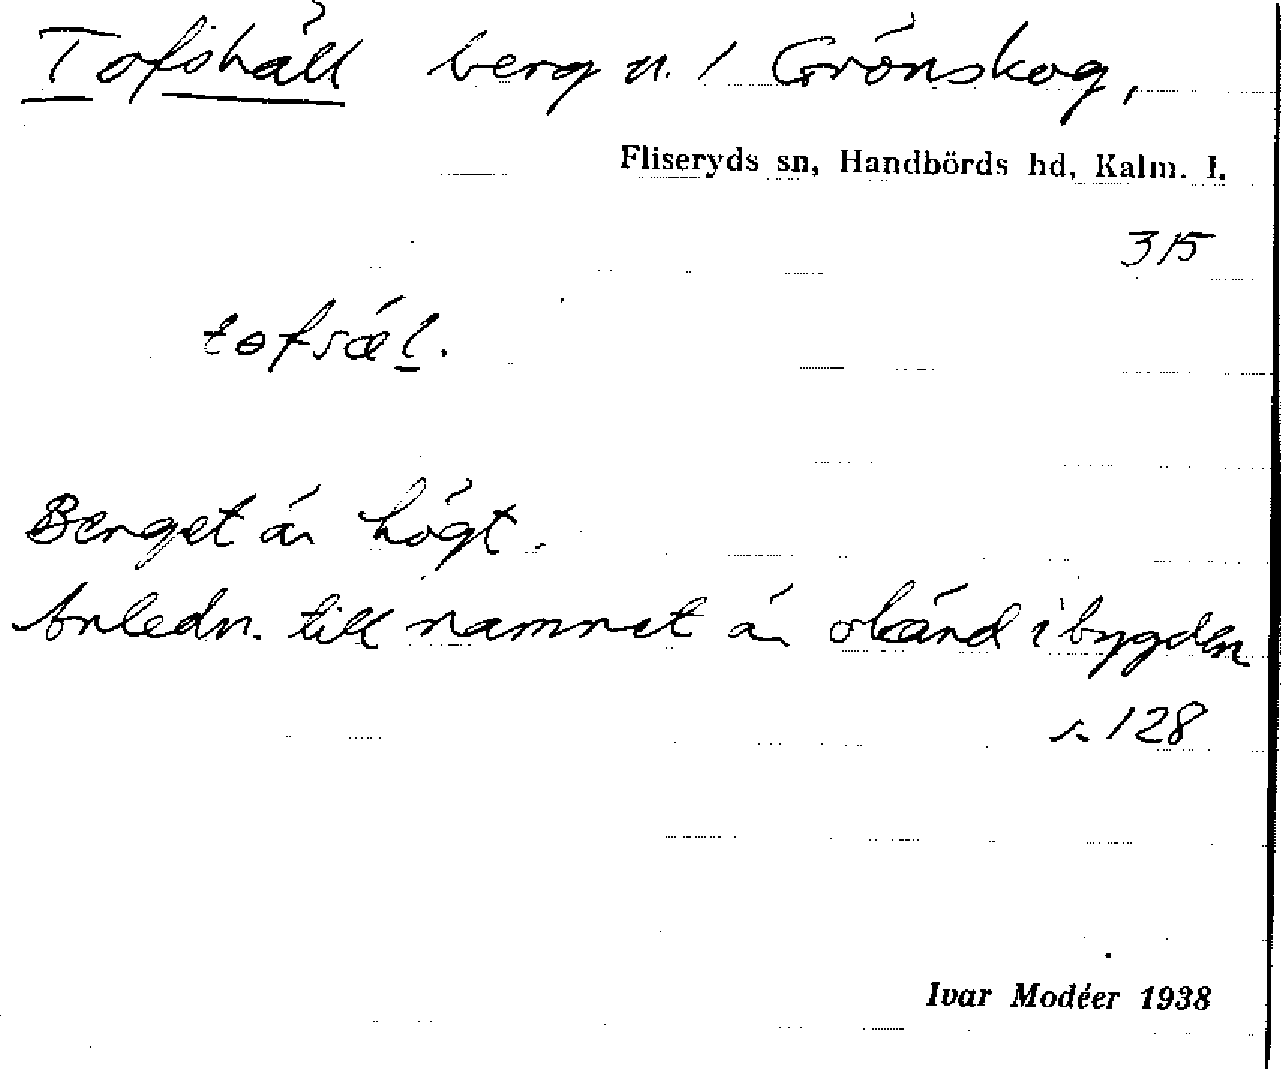 Tofshäll berg n. / Grönskog,
Fliseryds sn, Handbörds hd, Kalm. l.
315
tofsæl.
Berget är högt.
Anledn. till namnet är okänd i bygden
s. 128
Ivar Modéer 1938